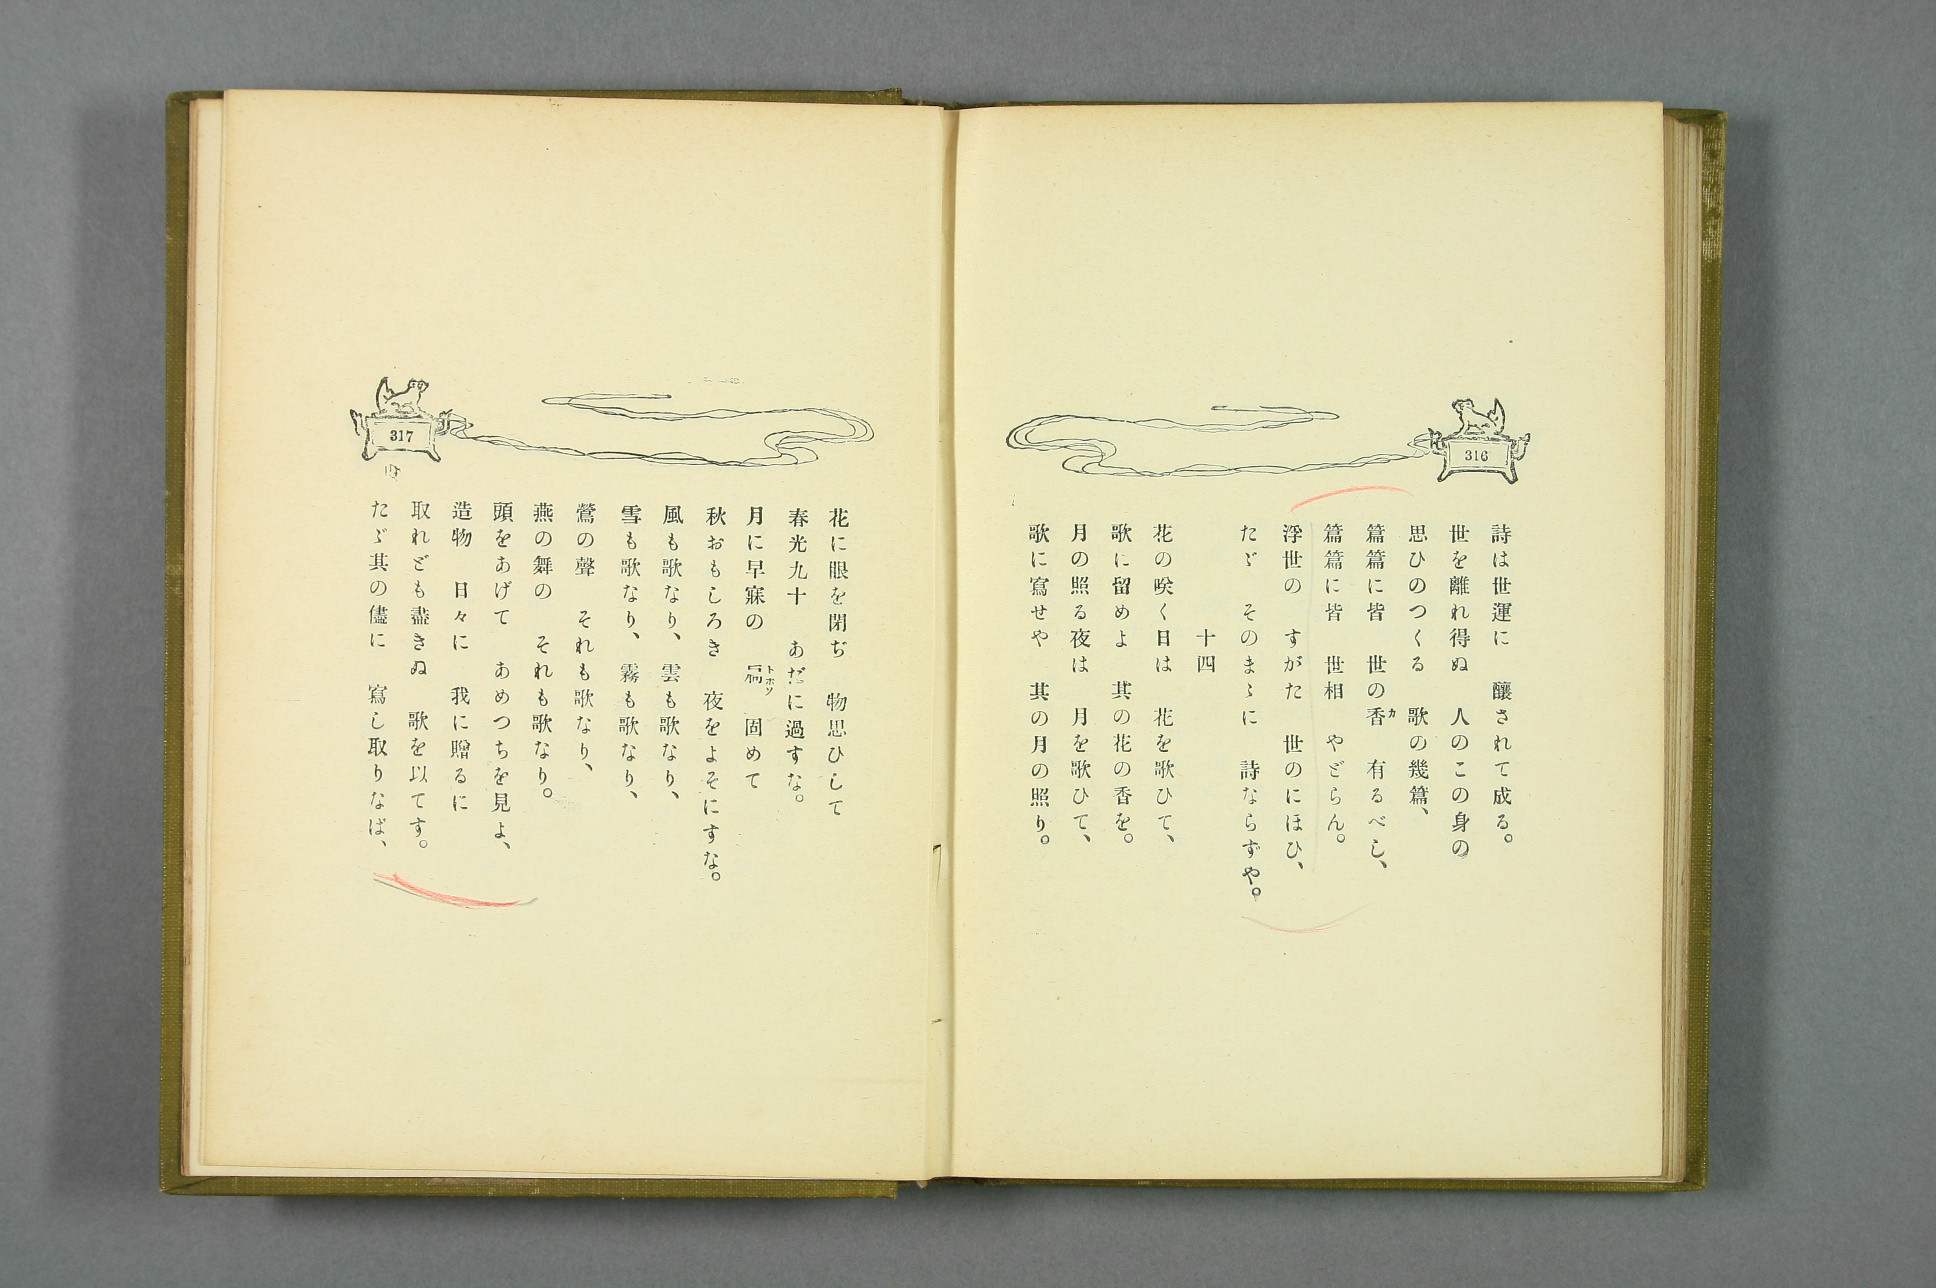 316
詩は世運に　釀されて成る。
世を離れ得ぬ　人のこの身の
思ひのつくる　歌の幾篇、
篇篇に皆　世の香　有るべし、
カ
篇篇に皆　世相　やどらん。
浮世の　すがた　世のにほひ、
たゞ　そのまゝに　詩ならずや。
十四
花の咲く日は　花を歌ひて、
歌に留めよ　其の花の香を。
月の照る夜は　月を歌ひて、
歌に寫せや　其の月の照り。
317
花に眼を閉ぢ　物思ひして
春光九十　あだに過すな。
月に早寐の　扃　固めて
トボソ
秋おもしろき　夜をよそにすな。
風も歌なり、雲も歌なり、
雪も歌なり、霧も歌なり、
鶯の聲　それも歌なり、
燕の舞の　それも歌なり。
頭をあげて　あめつちを見よ、
造物　日々に　我に贈るに
取れども盡きぬ　歌を以てす。
たゞ其の儘に　寫し取りなば、